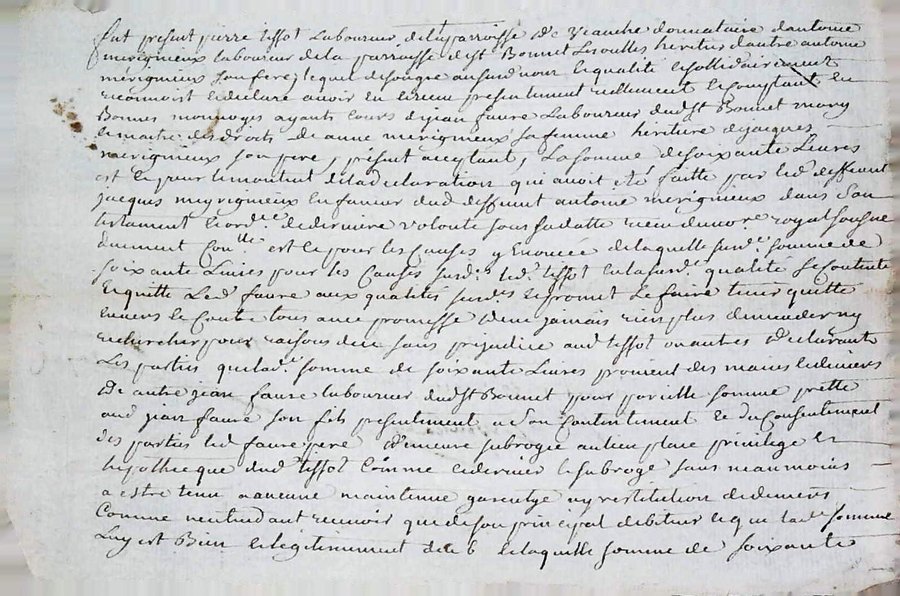 fut présent pierre tissot Laboureur de la parroisse de donnataire dantoine
merigneux laboureur de la parroisse de st Bonnet heritier dautre antoine
merigneux son frere, lequel de son gre au susd nom et qualité et sollidairement
reconnoist et declare avoir eu et receu presentement reellement et comptant en
Bonnes monnoyes ayants cours de jean faure Laboureur dud st Bonnet mary
et maitre des droits de anne merigneux sa femme heritiere de jacques
merigneux son pere, présent acceptant, La somme de soixante Livres
est ce pour le montant de la declaration qui avoit été faitte par led deffunt
jacques merigneux en faveur dud deffunt antoine merigneux dans son
testament et ord.e de derniere volonté sous sa datte receu du no.re royal sousigne
duement con.lle est ce pour les Causes y Enoncée de laquelle susd.e somme de
soixante Livres pour les Causes susd.s led.t tissot en la susd.e qualité se contente
Et quitte Led faure aux qualités susd.s et promet le faire tenir quitte
envers et contre tous avec promesse de ne jamais rien plus demander ny
rechercher pour raison de ce sans prejudice aud tissot dautres declarants
Les parties que lad.e somme de soixante Livres provient des mains et deniers
de autre jean faure laboureur dud st Bonnet pour pareille somme prette
aud jean faure son fils presentement a son contentement Et du Consentement
des parties led faure pere demeure subrogé au lieu place privilege et
hipotheque dud tissot Comme ce dernier le subroge sans neanmoins
a estre tenu a aucune maintenue garentye ny restitution de deniers
Comme nentendant recevoir que de son principal debiteur et que lad.e somme
Luy est Bien et legitimement deub et laquelle somme de soixante